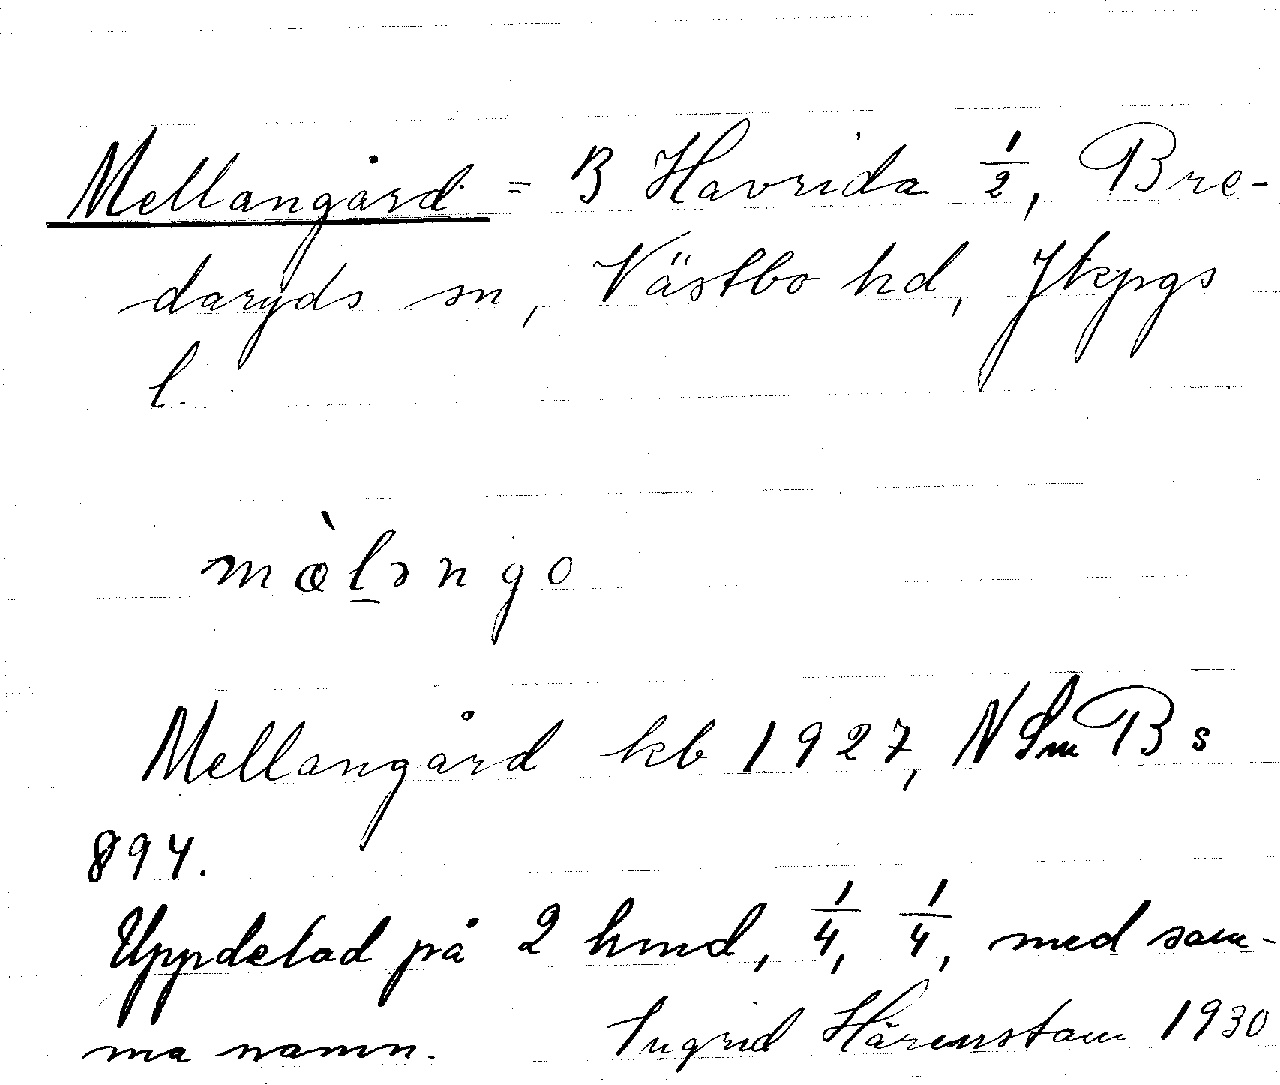 Mellangård = B Havrida 1/2, Bre-
daryds sn, Västbo hd, Jkpgs
l.
mæ̀l̠əngo
Mellangård kb 1927, N Sm B s
894.
Uppdelad på 2 hmd, 1/4, 1/4, med sam-
ma namn. Ingrid Härenstam 1930